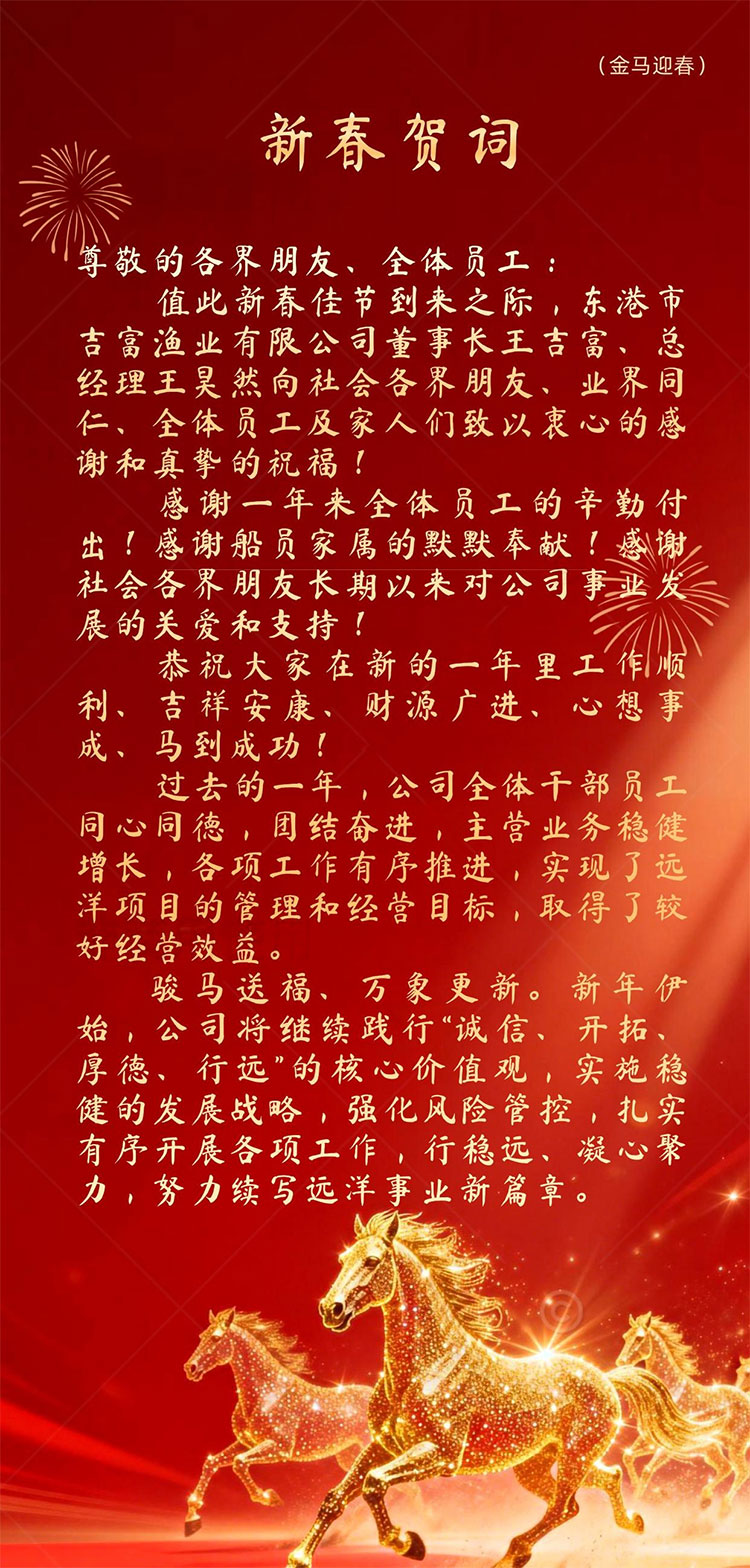 （金马迎春）
新春贺词
尊敬的各界朋友、全体员工：
值此新春佳节到来之际，东港市
吉富渔业有限公司董事长王吉富、总
经理王昊然向社会各界朋友、业界同
仁、全体员工及家人们致以衷心的感
谢和真挚的祝福！
感谢一年来全体员工的辛勤付
出！感谢船员家属的默默奉献！感谢
社会各界朋友长期以来对公司事业发
展的关爱和支持！
恭祝大家在新的一年里工作顺
利、吉祥安康、财源广进、心想事
成、马到成功！
过去的一年，公司全体干部员工
同心同德，团结奋进，主营业务稳健
增长，各项工作有序推进，实现了远
洋项目的管理和经营目标，取得了较
好经营效益。
骏马送福、万象更新。新年伊
始，公司将继续践行“诚信、开拓、
厚德、行远”的核心价值观，实施稳
健的发展战略，强化风险管控，扎实
有序开展各项工作，行稳远、凝心聚
力，努力续写远洋事业新篇章。